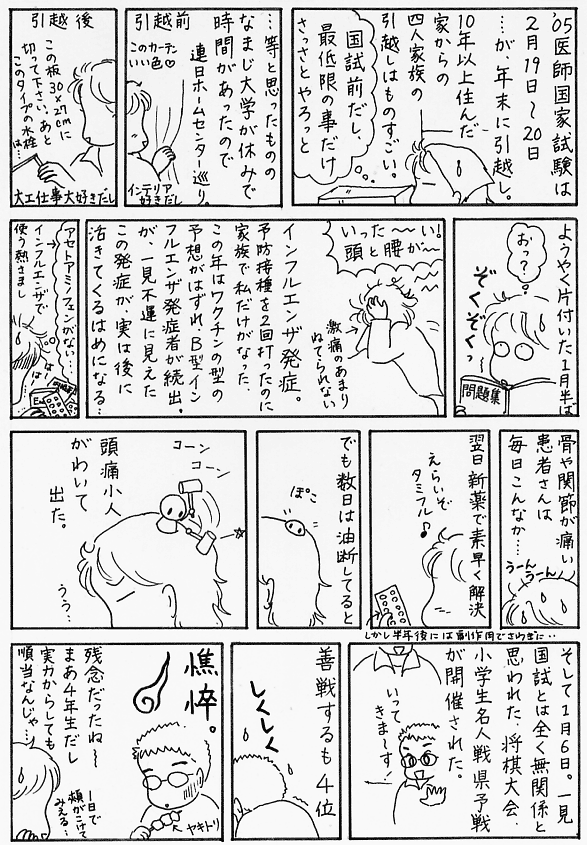 '05医師国家試験は
2月19日〜20日
…が、年末に引越し。
10年以上住んだ
家からの
四人家族の
引越しはものすごい。
国試前だし、
最低限の事だけ
さっさとやろっと
…等と思ったものの
なまじ大学が休みで
時間があったので
連日ホームセンター巡り。
引越前
このカーテン
いい色♡
インテリア
好きだし
引越後
この板30×27cmに
切って下さい。あと
このタイプの水栓
は…
大工仕事大好きだし
ようやく片付いた1月半ば
おっ?
ぞくぞくっ
問題集
いった〜〜い!
頭と腰が〜
激痛のあまり
ねてられない
インフルエンザ発症。
予防接種を2回打ったのに
家族で私だけがなった。
この年はワクチンの型の
予想がはずれ、B型イン
フルエンザ発症者が続出。
が、一見不運に見えた
この発症が、実は後に
活きてくるはめになる…
アセトアミノフェンがない…
インフルエンザで
使う熱さまし
骨や関節が痛い
患者さんは
毎日こんなか…
うーん
うーん
翌日新薬で素早く解決
えらいぞ
タミフル♪
しかし半年後には副作用でさわぎに…
でも数日は油断してると
ぽこ
コーン
コーン
頭痛小人
がわいて
出た。
うう…
そして1月6日。一見
国試とは全く無関係と
思われた、将棋大会、
小学生名人戦県予戦
が開催された。
いって
きまーす!
善戦するも4位
しくしく
憔悴。
1日で
頬がこけて
みえる…
ヤキトリ
残念だったね〜
まあ4年生だし
実力からしても
順当なんじゃ…